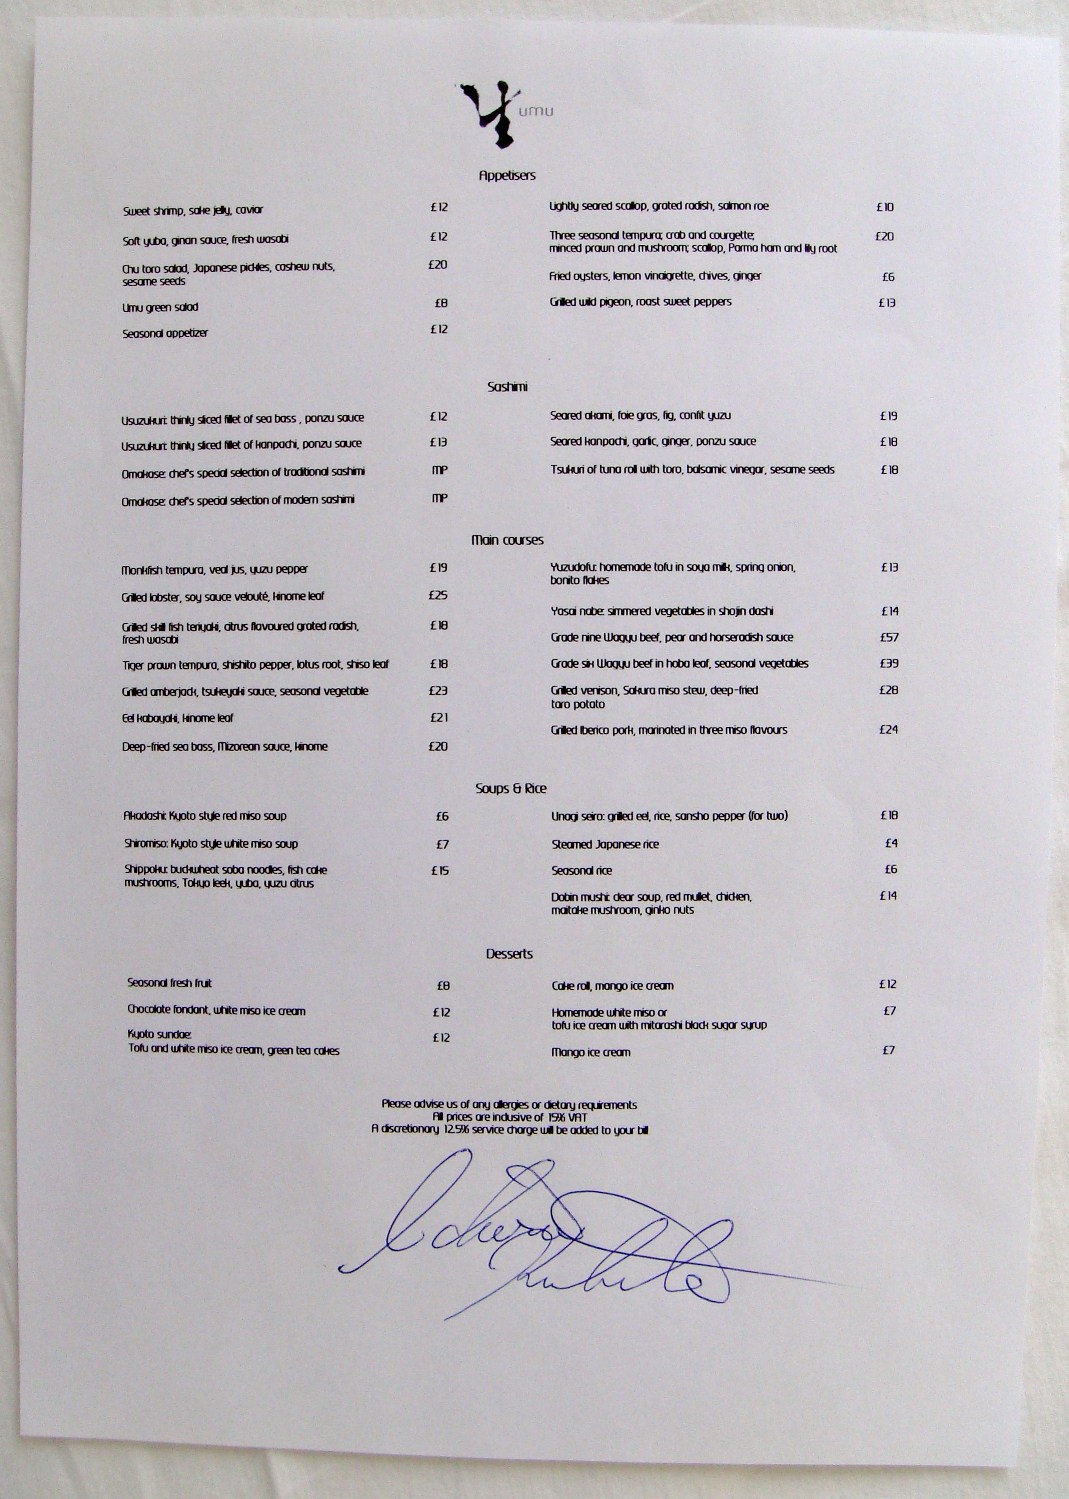 umu
Appetisers
Sweet shrimp, sake jelly, caviar £12
Soft yuba, ginan sauce, fresh wasabi £12
Chu toro salad, Japanese pickles, cashew nuts,
sesame seeds £20
Umu green salad £8
Seasonal appetizer £12
Lightly seared scallop, grated radish, salmon roe £10
Three seasonal tempura; crab and courgette; £20
minced prawn and mushroom; scallop, Parma ham and lily root
Fried oysters, lemon vinaigrette, chives, ginger £6
Grilled wild pigeon, roast sweet peppers £13
Sashimi
Usuzukuri: thinly sliced fillet of sea bass , ponzu sauce £12
Usuzukuri: thinly sliced fillet of kanpachi, ponzu sauce £13
Omakase: chef's special selection of traditional sashimi MP
Omakase: chef's special selection of modern sashimi MP
Seared akami, foie gras, fig, confit yuzu £19
Seared kanpachi, garlic, ginger, ponzu sauce £18
Tsukuri of tuna roll with toro, balsamic vinegar, sesame seeds £18
Main courses
Monkfish tempura, veal jus, yuzu pepper £19
Grilled lobster, soy sauce velouté, kinome leaf £25
Grilled skill fish teriyaki, citrus flavoured grated radish, £18
fresh wasabi
Tiger prawn tempura, shishito pepper, lotus root, shiso leaf £18
Grilled amberjack, tsukeyaki sauce, seasonal vegetable £23
Eel kabayaki, kinome leaf £21
Deep-fried sea bass, Mizorean sauce, kinome £20
Yuzudofu: homemade tofu in soya milk, spring onion, £13
bonito flakes
Yasai nabe: simmered vegetables in shojin dashi £14
Grade nine Wagyu beef, pear and horseradish sauce £57
Grade six Wagyu beef in hoba leaf, seasonal vegetables £39
Grilled venison, Sakura miso stew, deep-fried £28
taro potato
Grilled Iberico pork, marinated in three miso flavours £24
Soups & Rice
Akadashi: Kyoto style red miso soup £6
Shiromiso: Kyoto style white miso soup £7
Shippoku: buckwheat soba noodles, fish cake £15
mushrooms, Tokyo leek, yuba, yuzu citrus
Unagi seiro: grilled eel, rice, sansho pepper (for two) £18
Steamed Japanese rice £4
Seasonal rice £6
Dobin mushi: clear soup, red mullet, chicken, £14
maitake mushroom, ginko nuts
Desserts
Seasonal fresh fruit £8
Chocolate fondant, white miso ice cream £12
Kyoto sundae: £12
Tofu and white miso ice cream, green tea cakes
Cake roll, mango ice cream £12
Homemade white miso or £7
tofu ice cream with mitarashi black sugar syrup
Mango ice cream £7
Please advise us of any allergies or dietary requirements
All prices are inclusive of 15% VAT
A discretionary 12.5% service charge will be added to your bill